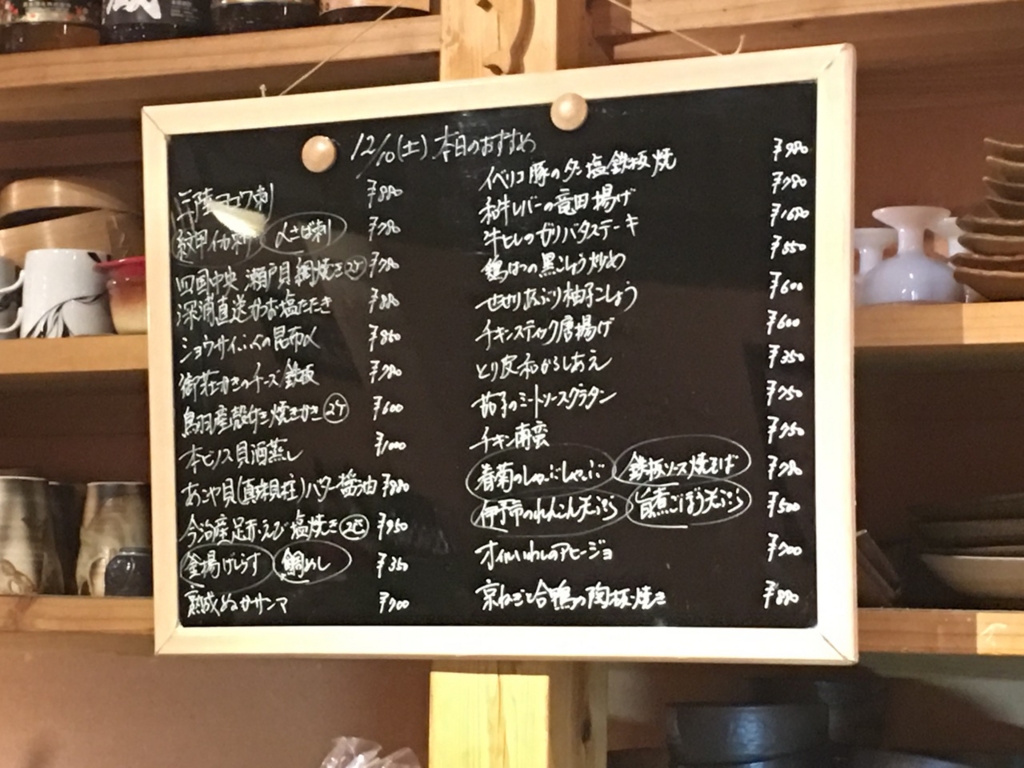 12/10(土) 本日のおすすめ
刺 ¥880
紋甲イカ刺 〆さば刺 ¥780
四国中央 瀬戸貝網焼き 2ケ ¥780
深浦直送かつお塩たたき ¥880
ショウサイふぐの昆布〆 ¥850
御荘かきのチーズ鉄板 ¥780
鳥羽産殻付き焼きかき 2ケ ¥600
本ビノス貝酒蒸し ¥1000
あこや貝(真珠貝柱)バター醤油 ¥880
今治産足赤えび塩焼き 2匹 ¥950
釜揚げしらす 鯛めし ¥350
熟成ぬかサンマ ¥700
イベリコ豚のタン塩鉄板焼 ¥980
和牛レバーの竜田揚げ ¥780
牛ヒレのガリバタステーキ ¥1680
鶏はつの黒こしょう炒め ¥550
せせりあぶり柚子こしょう ¥600
チキンスティック唐揚げ ¥600
とり皮和がらしあえ ¥350
茄子のミートソースグラタン ¥750
チキン南蛮 ¥750
春菊のしゃぶしゃぶ 鉄板ソース焼そば ¥780
伊予市のれんこん天ぷら 旨煮ごぼう天ぷら ¥500
オイルいわしのアヒージョ ¥700
京ねぎと合鴨の陶板焼き ¥880